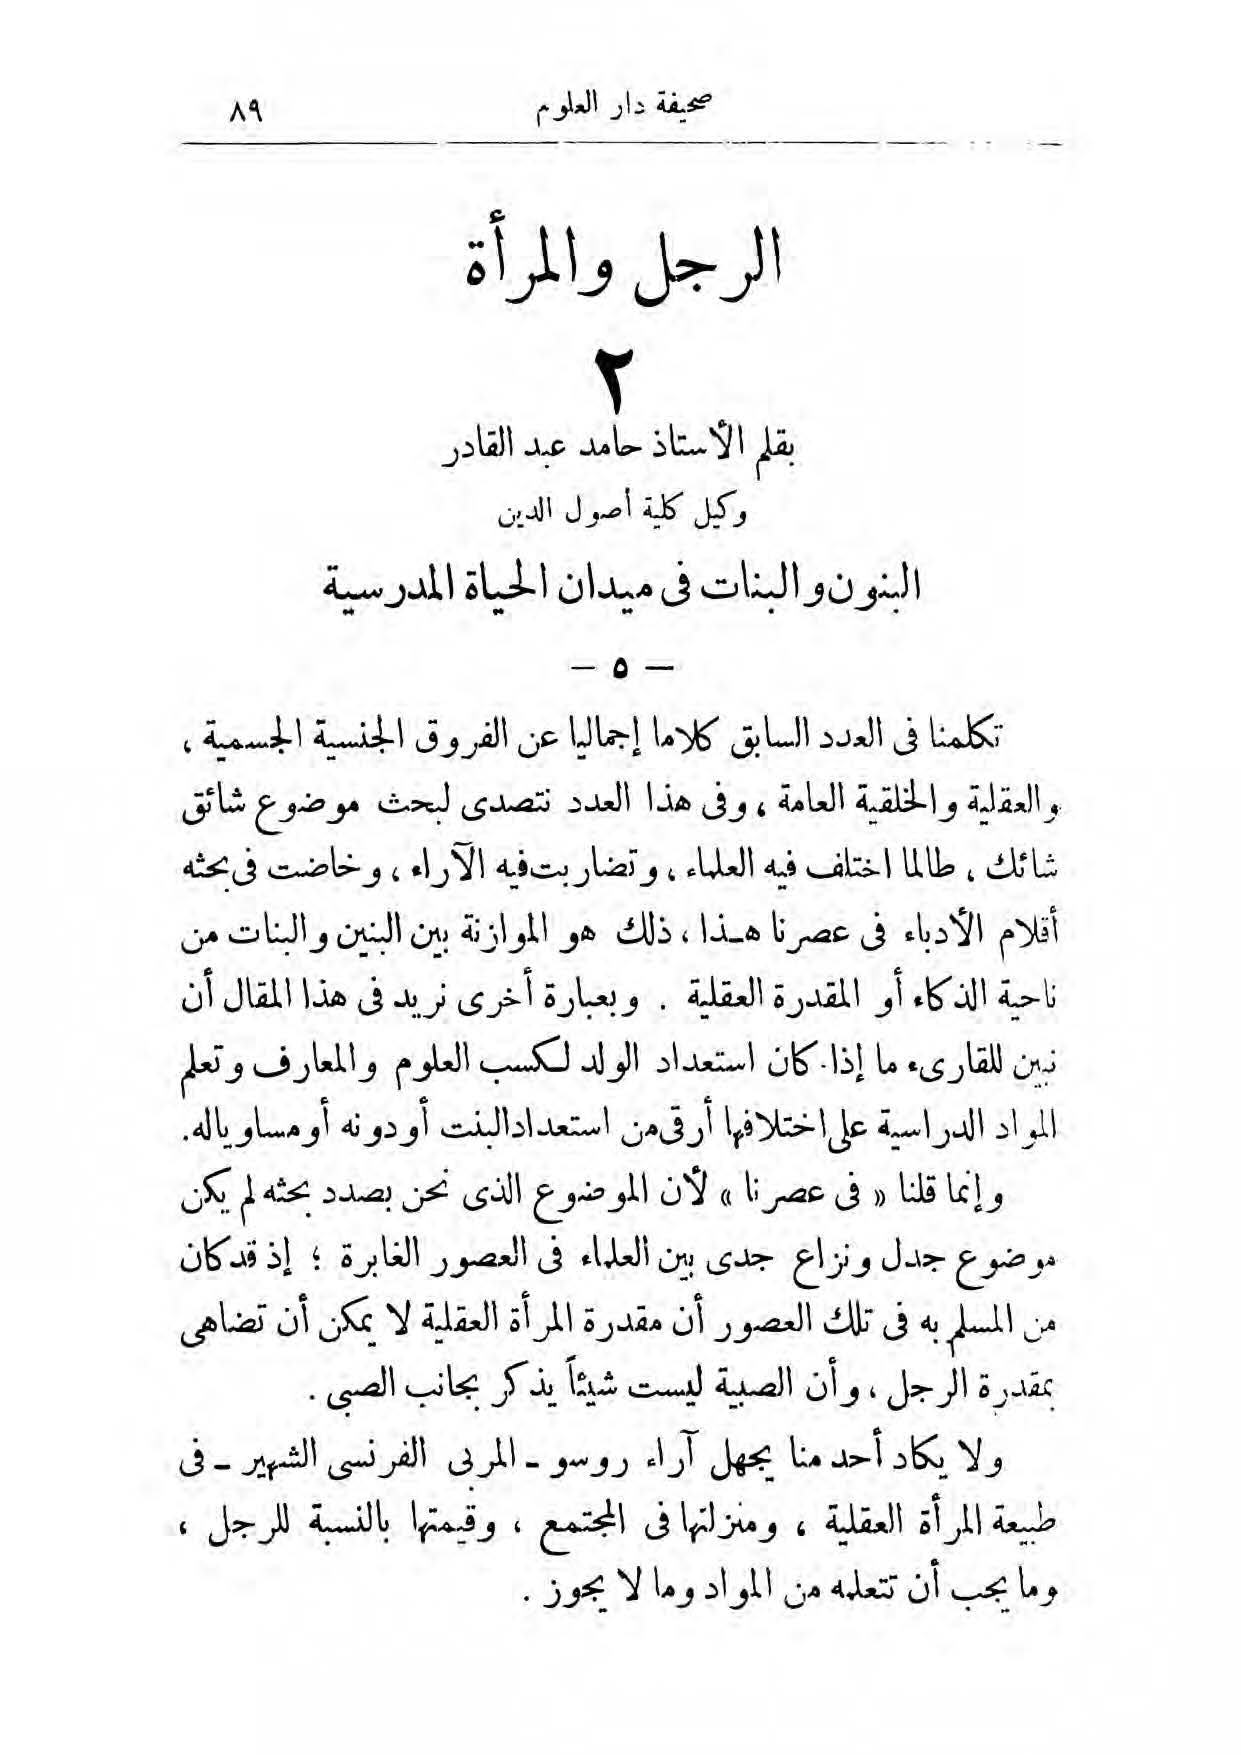 صحيفة دار العلوم ٨٩
الرجل والمرأة
٢
بقلم الأستاذ حامد عبد القادر
وكيل كلية أصول الدين
البنون والبنات فى ميدان الحياة المدرسية
— ٥ —
تكلمنا فى العدد السابق كلاما إجماليا عن الفروق الجنسية الجسمية ،
والعقلية والخلقية العامة ، وفى هذا العدد نتصدى لبحث موضوع شائق
شائك ، طالما اختلف فيه العلماء ، وتضاربت فيه الآراء ، وخاضت فى بحثه
أقلام الأدباء فى عصرنا هـذا ، ذلك هو الموازنة بين البنين والبنات من
ناحية الذكاء أو المقدرة العقلية . وبعبارة أخرى نريد فى هذا المقال أن
نبين للقارىء ما إذا كان استعداد الولد لكسب العلوم والمعارف وتعلم
المواد الدراسية على اختلافها أرقى من استعداد البنت أو دونه أو مساويا له.
وإنما قلنا « فى عصرنا » لأن الموضوع الذى نحن بصدد بحثه لم يكن
موضوع جدل ونزاع جدى بين العلماء فى العصور الغابرة ؛ إذ قد كان
من المسلم به فى تلك العصور أن مقدرة المرأة العقلية لا يمكن أن تضاهى
بمقدرة الرجل ، وأن الصبية ليست شيئاً يذكر بجانب الصبى .
ولا يكاد أحد منا يجهل آراء روسو ـ المربى الفرنسى الشهير ـ فى
طبيعة المرأة العقلية ، ومنزلتها فى المجتمع ، وقيمتها بالنسبة للرجل ،
وما يجب أن تتعلمه من المواد وما لا يجوز .